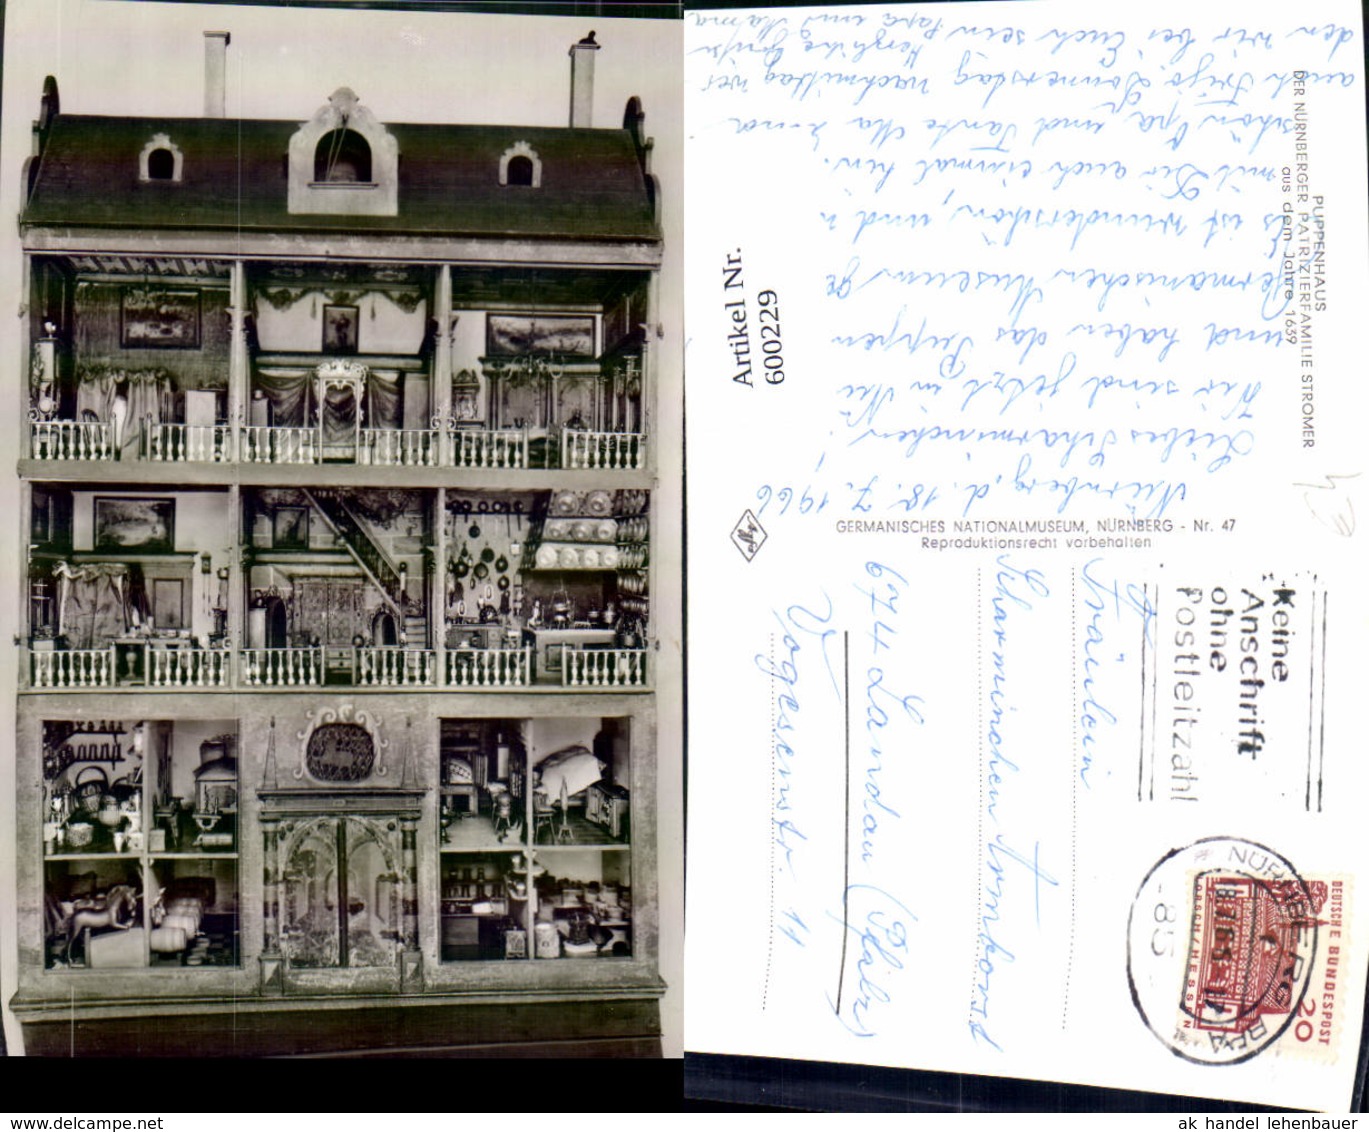 PUPPENHAUS
DER NÜRNBERGER PATRIZIERFAMILIE STROMER
aus dem Jahre 1639
Artikel Nr.
600229
Nürnberg, d. 18. 7. 1966
Liebes Scharminchen!
Wir sind jetzt in
und haben das Puppen
Germanischen Museum ge
Es ist wunderschön, und
mit Dir auch einmal hin.
schön Opa und Tante
auch Donnerstag nachmittag wer
den wir bei Euch sein
Herzliche Grüße
Papa und Mama
GERMANISCHES NATIONALMUSEUM, NÜRNBERG - Nr. 47
Reproduktionsrecht vorbehalten
Keine
Anschrift
ohne
Postleitzahl
NÜRNBERG
85
DEUTSCHE BUNDESPOST
20
LORSCH/HESSEN
Fräulein
Scharminchen Armborst
674 Landau (Pfalz)
Vogesenstr. 11
ak handel lehenbauer